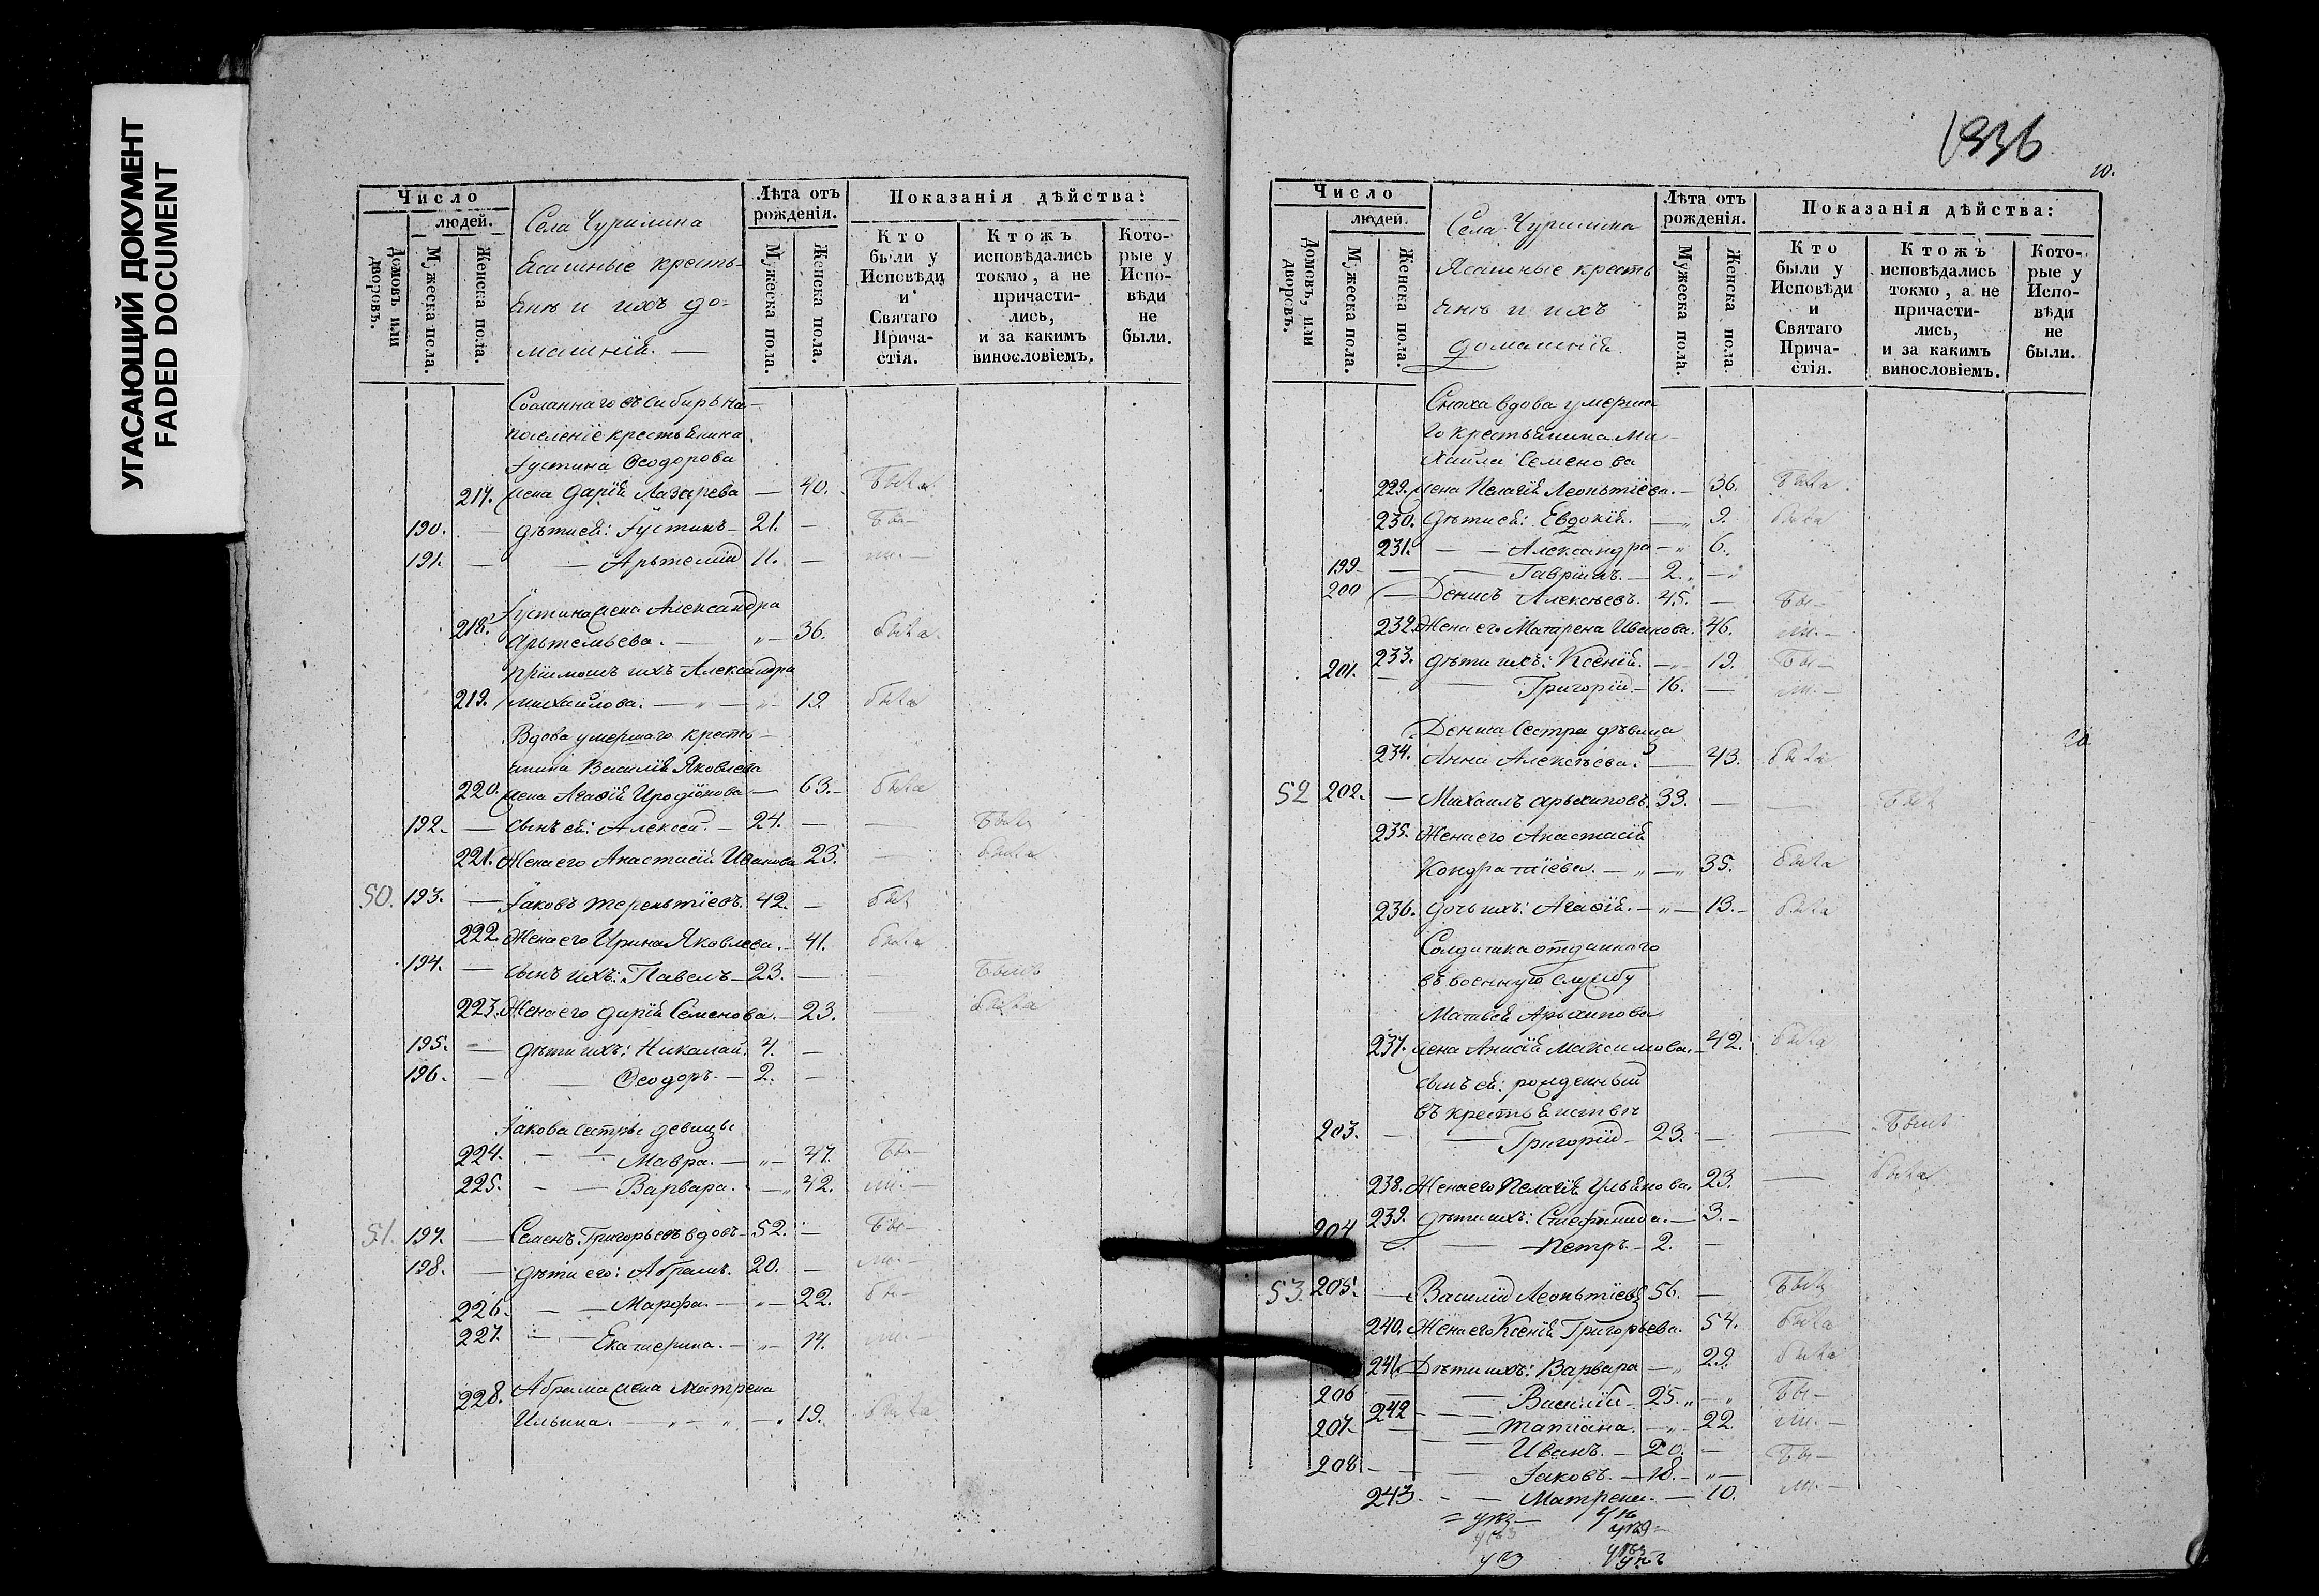 УГАСАЮЩИЙ ДОКУМЕНТ
FADED DOCUMENT
Число
людей.
Домовъ или дворовъ.
Мужеска пола.
Женска пола.
Села Чурилина
Ясашные кресть-
яня и ихъ до-
машнія. —
Лѣта отъ рожденія.
Мужеска пола.
Женска пола.
Показанія дѣйства:
Кто были у Исповѣди и Святаго Прича- стія.
Ктожъ исповѣдались токмо, а не причасти- лись, и за какимъ винословіемъ.
Кото- рые у Испо- вѣди не были.
Сосланнаго въ сибирь на
поселеніе крестьянина
Іустина Ѳеодорова
217. жена Дарія Лазарева — 40. была
190. — дѣти ея: Іустинъ — 21. — бы—
191. — — Артемій 11. — ли. —
Іустина жена Александра
218. Артемьева. — „ — 36. была.
пріимошъ ихъ Александра
219. михайлова. — „ — „ — 19 была
Вдова умершаго кресть-
янина Василія Яковлева
220. жена Агафія Иродіонова — 63. — была
192. — сынъ ея: Алексей. — 24. — — былъ
221. Жена его Анастасія Иванова 23. — была
50. 193. — Іаковъ терентіевъ. 42. — былъ
222. Жена его Ирина Яковлева. — 41. была
194. — сынъ ихъ: Павелъ — 23. — — былъ
223. Жена его дарія Семенова. — 23. — была
195. — дѣти ихъ: Николай. 4. —
196. — — Ѳеодоръ. — 2. —
Іакова сестры девицы
224. — — Мавра. — „ — 47. бы—
225. — — Варвара. — „ 42. ли. —
51. 197. — Семенъ Григорьевъ вдовъ — 52. — бы—
198. — дѣти его: Абрамъ. 20. — ли. —
226. — — Марфа. — „ — 22. бы—
227. — — Екатерина. — „ — 14. ли. —
Абрама жена Матрена
228. Ильина. — „ — „ — „ 19. была
1836
10.
Число
людей.
Домовъ, или дворовъ.
Мужеска пола.
Женска пола.
Села Чурилина
Ясашные кресть
яня и ихъ
домашнія.
Лѣта отъ рожденія.
Мужеска пола.
Женска пола
Показанія дѣйства:
Кто были у Исповѣди и Святаго Прича- стія.
Ктожъ исповѣдались токмо, а не причасти- лись, и за какимъ винословіемъ.
Кото- рые у Испо- вѣди не были.
Сноха вдова умерша
го крестьянина Ми-
хаила Семенова
229. жена Пелагія Леонтіева. — 36. была.
230. Дѣти ея: Евдокія. — „ 9. была
231. — — Александра — „ 6.
199 — — Гавріилъ. — 2. „ — „
200 — Денисъ Алексѣевъ. 45. — бы—
232. Жена его Матрена Иванова. 46. ли. —
233. дѣти ихъ: Ксенія. — „ — 19. бы—
201. — — Григорій — 16. — ли. —
Дениса Сестра дѣвица
234. Анна Алексѣева. — 43. была
52 202. — Михаилъ архиповъ 33. — — былъ
235. Жена его Анастасія
Кондратіева. — „ — „ 35. была
236. дочь ихъ: Агафія. — „ — 13. — была
Солдатка отданнаго
въ военную службу
Матвея Архипова
237. жена Анисія Максимова. — 42. была
сынъ ея: рожденный
въ крестьянствѣ
203. — — Григорій — 23. — — былъ
238. Жена его Пелагія Ульянова. 23. — была
239. дѣти ихъ: Стефанида. — 3. —
204 — — Петръ. — 2. —
53. 205. — Василій Леонтіевъ 56. — былъ
240. Жена его Ксенія Григорьева. 54. была
241. Дѣти ихъ: Варвара — „ 29. была
206 — — Василій — 25. „ — „ бы—
242 — — татіана. — „ — 22. ли. —
207. — — Иванъ. — 20. — бы—
208 — — Іаковъ. — 18. — „ —
243. — — Матрена. — 10. ли. —